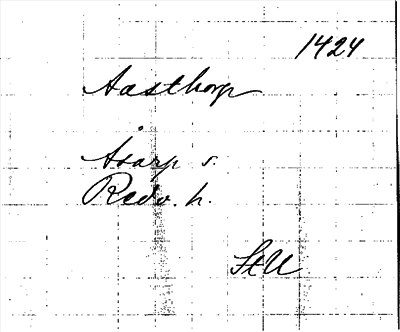 1424
Aasthorp
Åsarp s.
Redv. h.
StU